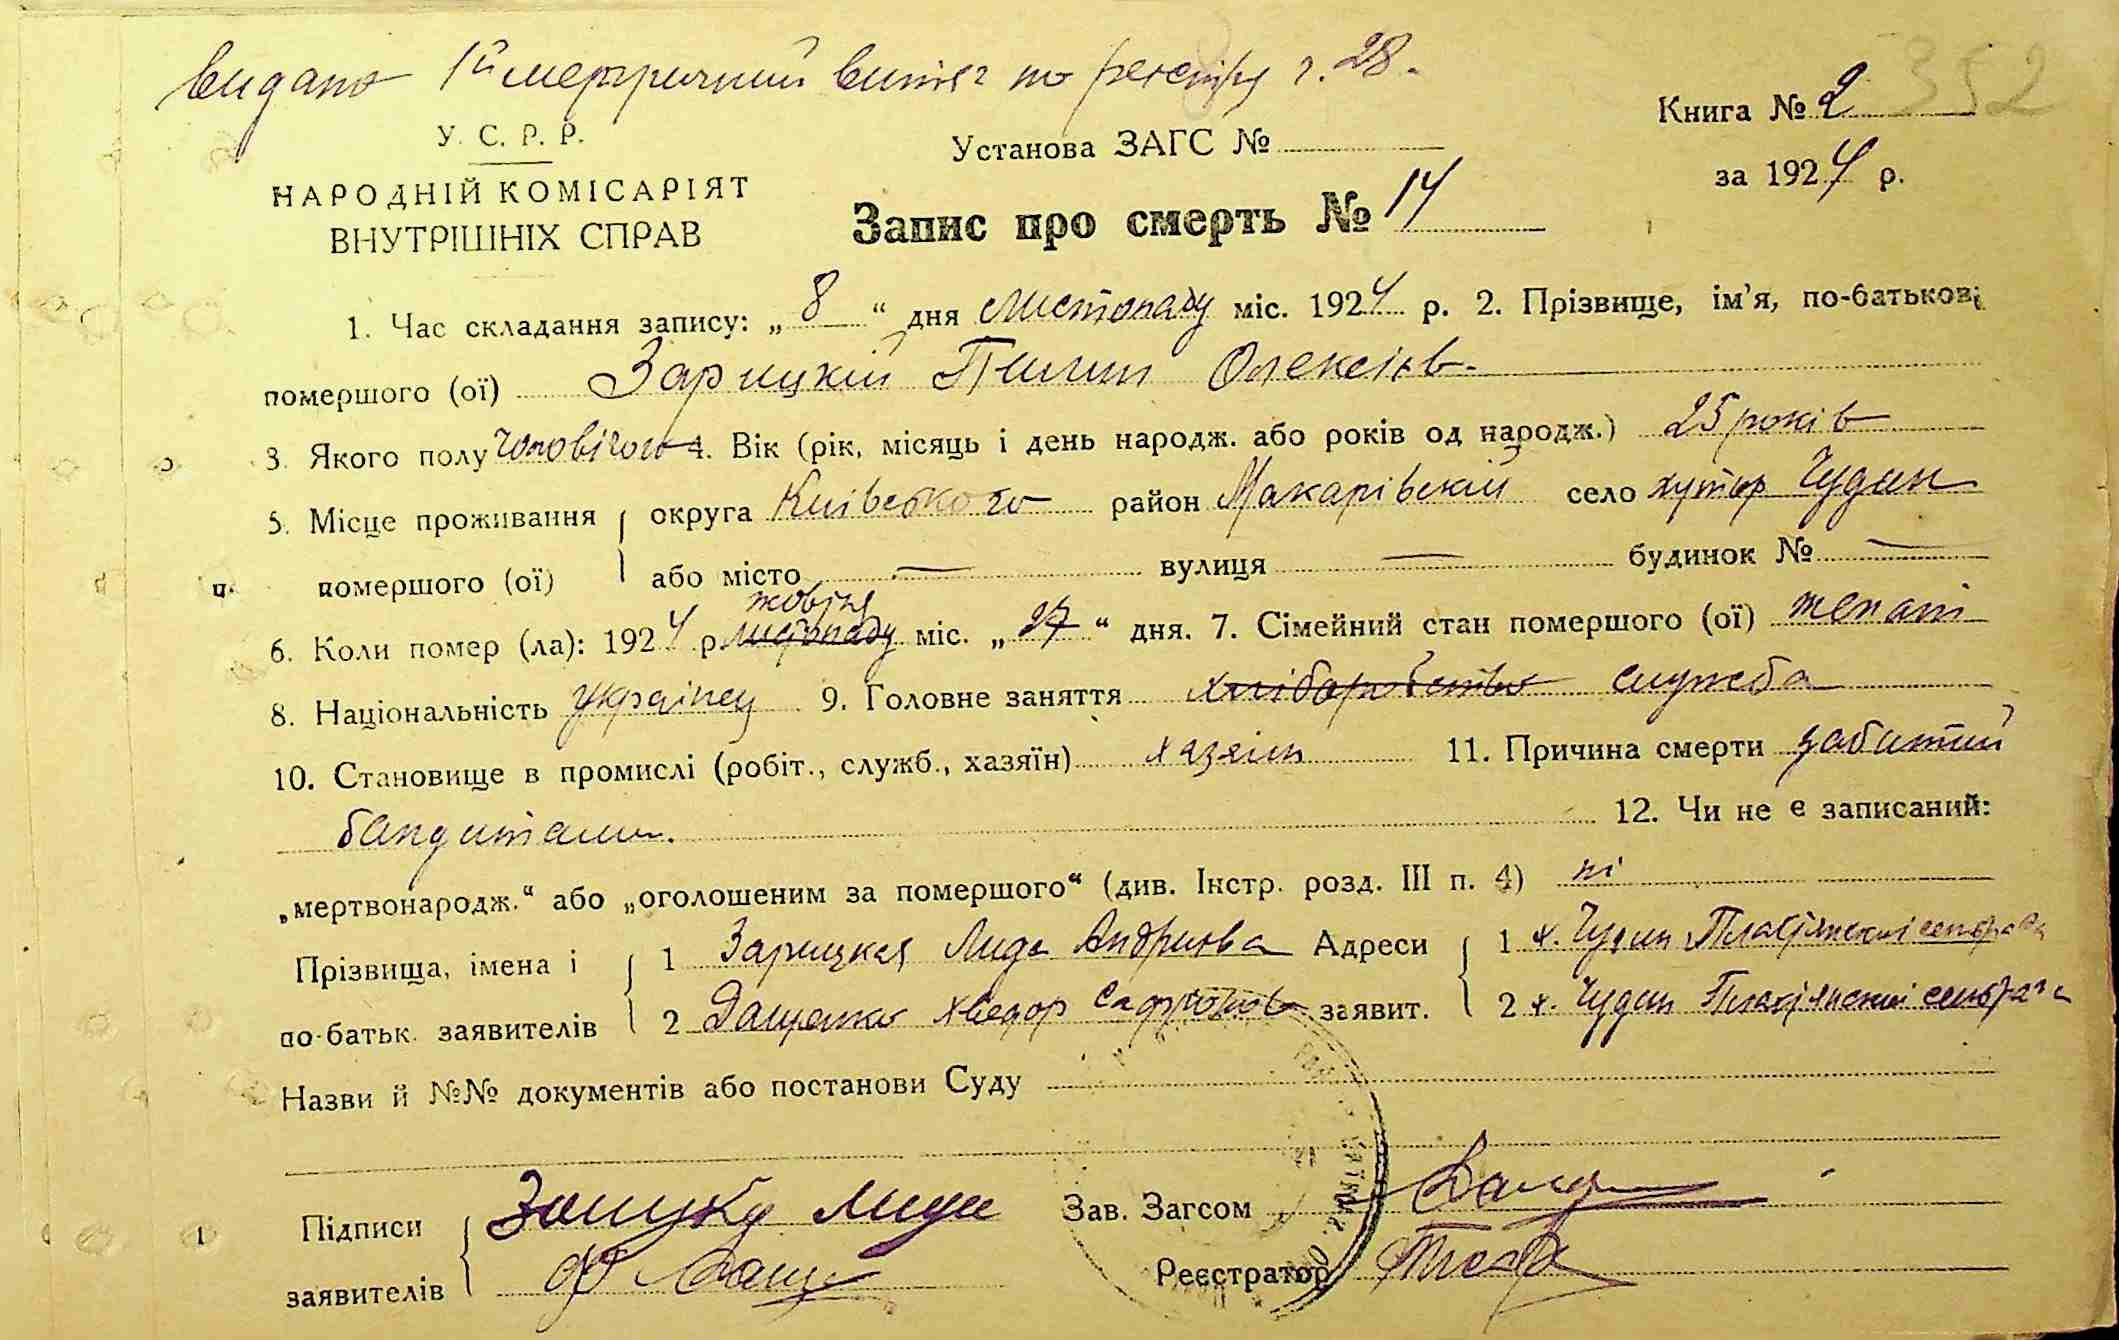 видано 1й метричний витяг по реєстру г. 28.
352
У. С. Р. Р.
НАРОДНІЙ КОМІСАРІЯТ
ВНУТРІШНІХ СПРАВ
Установа ЗАГС №
Книга № 2
за 1924 р.
Запис про смерть № 14
1. Час складання запису: „ 8 “ дня Листопаду міс. 1924 р. 2. Прізвище, ім'я, по-батькові
помершого (ої) Зарицкий Пилип Олексієв.
3. Якого полу чоловічого 4. Вік (рік, місяць і день народж. або років од народж.) 25 років
5. Місце проживання округа Київського район Макарівский село хутор Чудин
помершого (ої) або місто — вулиця — будинок № —
жовтня
6. Коли помер (ла): 1924 р. листопаду міс. „ 27 “ дня. 7. Сімейний стан помершого (ої) женат
8. Національність українец 9. Головне заняття хліборобство служба
10. Становище в промислі (робіт., служб., хазяїн) хазяїн 11. Причина смерти забитий
бандитами. 12. Чи не є записаний:
„мертвонародж.“ або „оголошеним за помершого“ (див. Інстр. розд. III п. 4) ні
Прізвища, імена і 1 Зарицкая Лида Андриєва Адреси 1 х. Чудин сельрада
по-батьк. заявителів 2 Дащенко Хведор Сафронов заявит. 2 х. Чудин сельрада
Назви й №№ документів або постанови Суду
Підписи Лида Зав. Загсом
заявителів Реєстратор